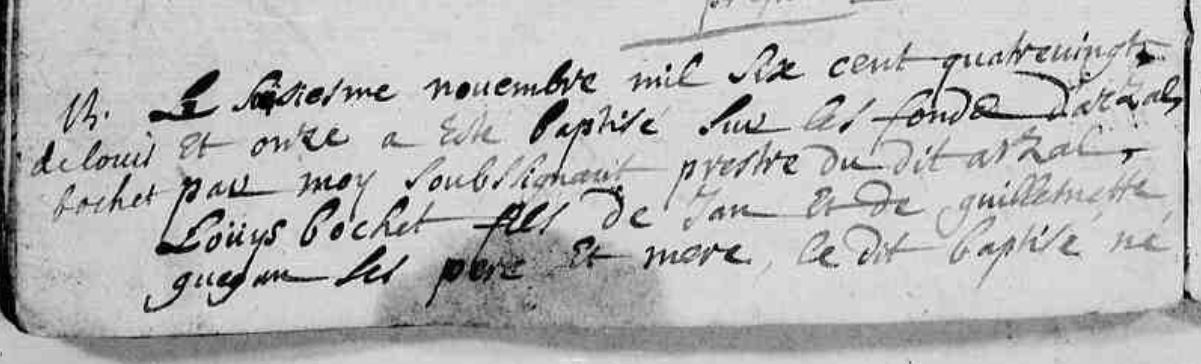 B.
de louis
bochet
Le sisiesme novembre mil six cent quatrevingt
Et onze a Esté baptisé sur les fonds d'arzal
par moy soubsignant prestre du dit arzal,
Louys bochet fils de Jan Et de guillemette
guegan ses pere Et mere, le dit baptisé né